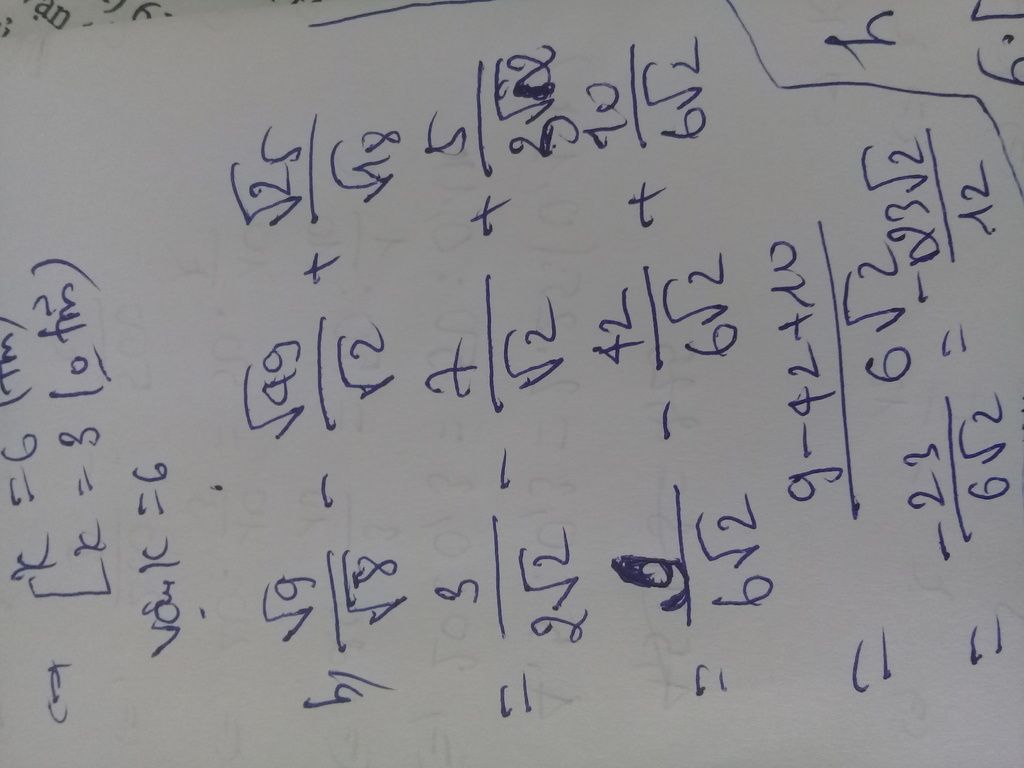 x = 6 (tm)
↔ [ x = 3 (o tm)
vậy x = 6
h) √9/√8 - √49/√2 + √25/√18
= 3/2√2 - 7/√2 + 5/3√2
= 9/6√2 - 42/6√2 + 10/6√2
= 9-42+10/6√2
= -23/6√2 = -23√2/12